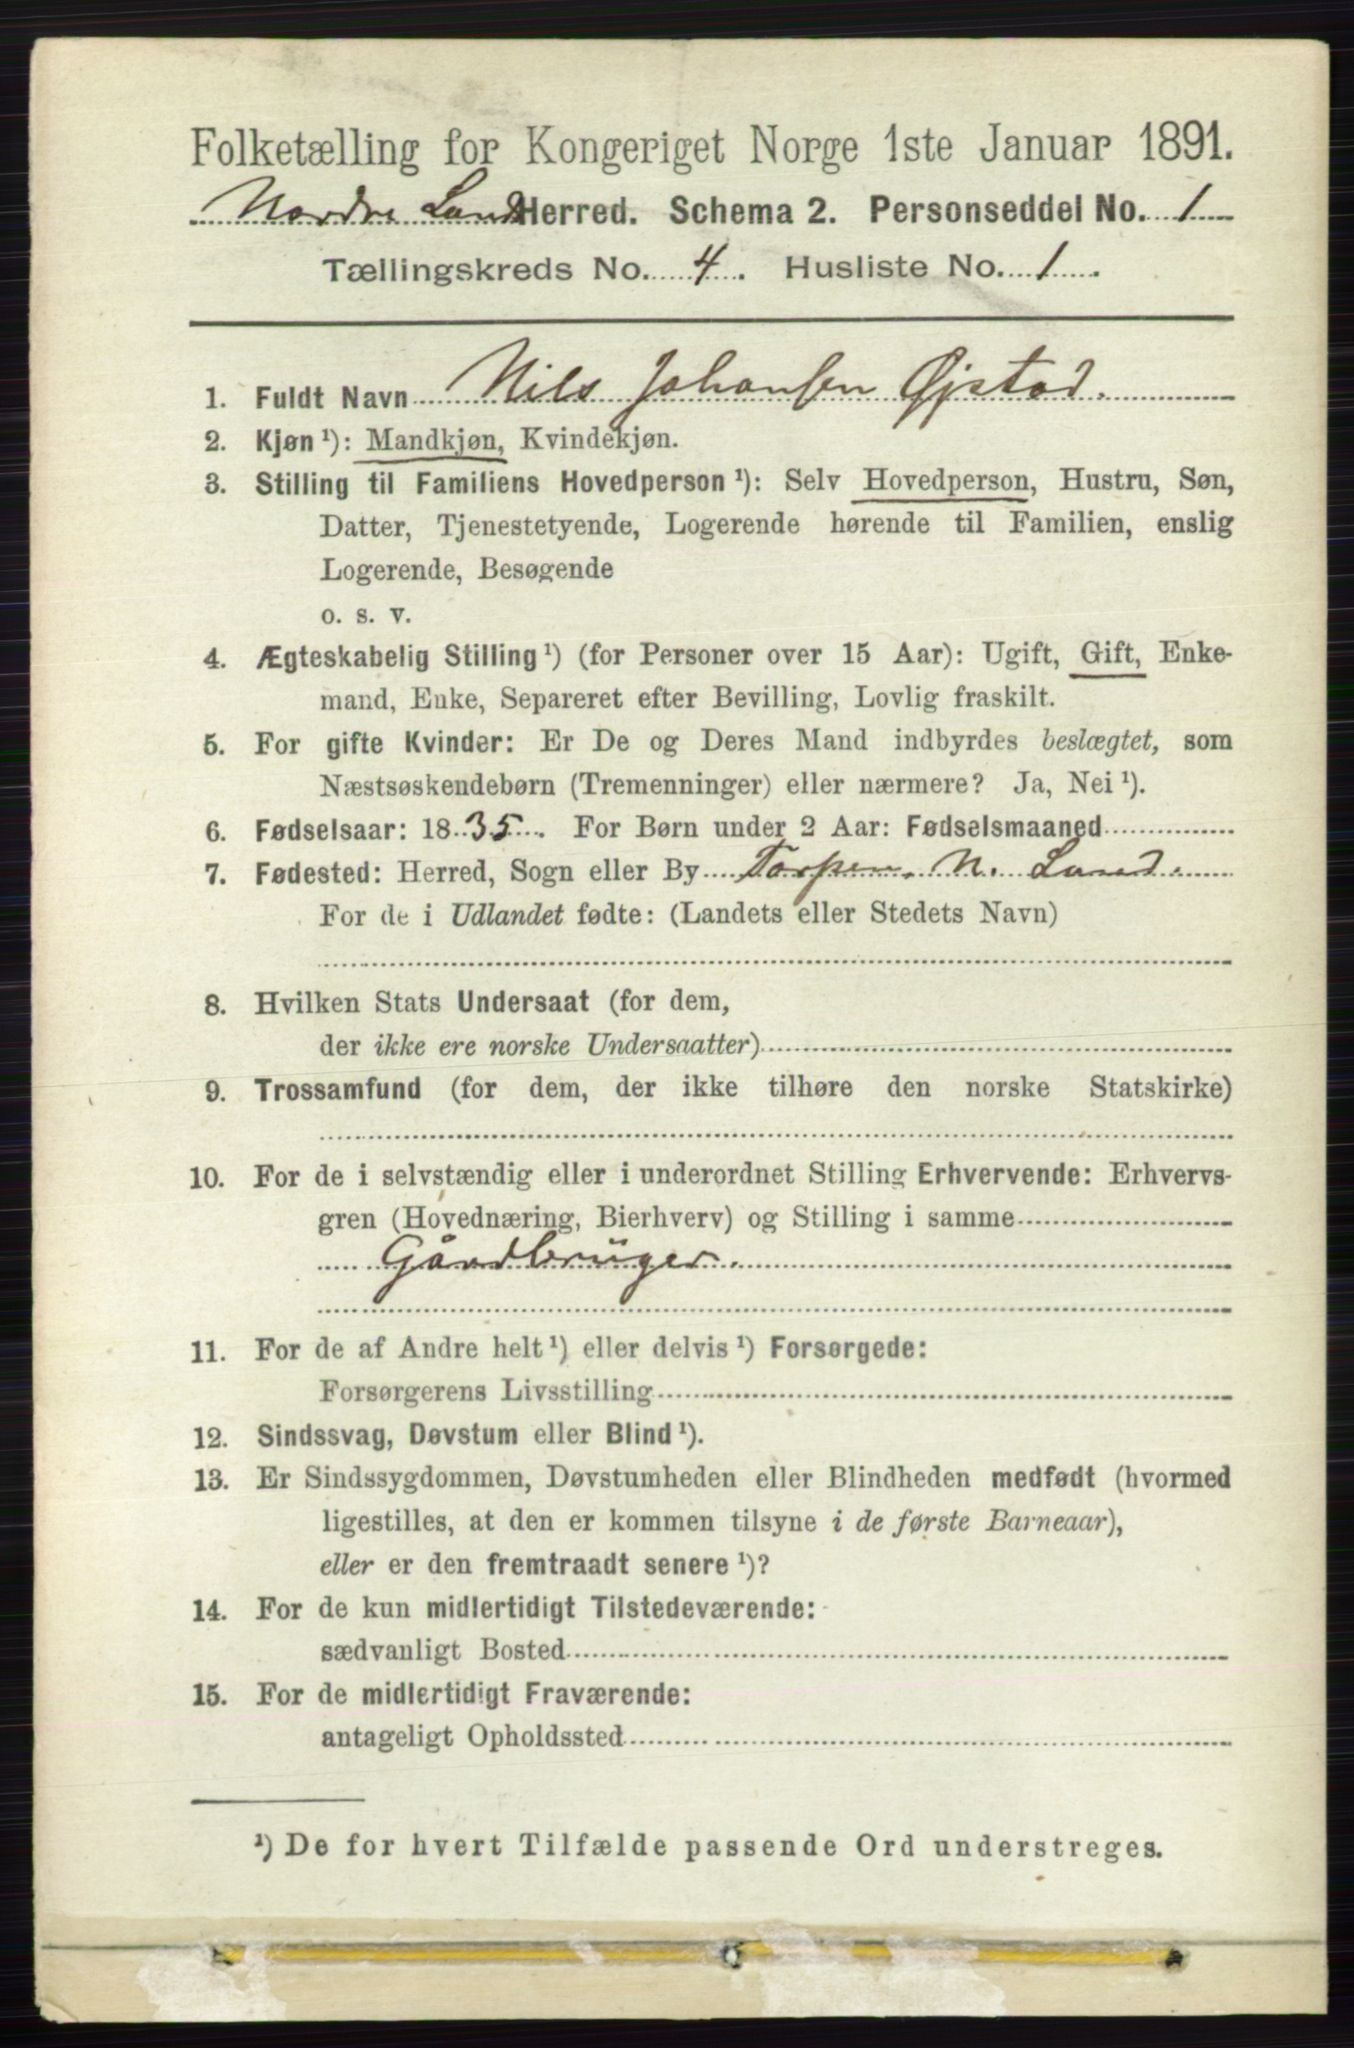 Folketælling for Kongeriget Norge 1ste Januar 1891.
Nordre Land Herred. Schema 2. Personseddel No. 1
Tællingskreds No. 4. Husliste No. 1.
1. Fuldt Navn Nils Johansen Øjstad.
2. Kjøn ¹): Mandkjøn, Kvindekjøn.
3. Stilling til Familiens Hovedperson ¹): Selv Hovedperson, Hustru, Søn,
Datter, Tjenestetyende, Logerende hørende til Familien, enslig
Logerende, Besøgende
o. s. v.
4. Ægteskabelig Stilling ¹) (for Personer over 15 Aar): Ugift, Gift, Enke-
mand, Enke, Separeret efter Bevilling, Lovlig fraskilt.
5. For gifte Kvinder: Er De og Deres Mand indbyrdes beslægtet, som
Næstsøskendebørn (Tremenninger) eller nærmere? Ja, Nei ¹).
6. Fødselsaar: 1835. For Børn under 2 Aar: Fødselsmaaned
7. Fødested: Herred, Sogn eller By Torpen. N. Land.
For de i Udlandet fødte: (Landets eller Stedets Navn)
8. Hvilken Stats Undersaat (for dem,
der ikke ere norske Undersaatter)
9. Trossamfund (for dem, der ikke tilhøre den norske Statskirke)
10. For de i selvstændig eller i underordnet Stilling Erhvervende: Erhvervs-
gren (Hovednæring, Bierhverv) og Stilling i samme
Gårdbrüger.
11. For de af Andre helt ¹) eller delvis ¹) Forsørgede:
Forsørgerens Livsstilling
12. Sindssvag, Døvstum eller Blind ¹).
13. Er Sindssygdommen, Døvstumheden eller Blindheden medfødt (hvormed
ligestilles, at den er kommen tilsyne i de første Barneaar),
eller er den fremtraadt senere ¹)?
14. For de kun midlertidigt Tilstedeværende:
sædvanligt Bosted
15. For de midlertidigt Fraværende:
antageligt Opholdssted
¹) De for hvert Tilfælde passende Ord understreges.